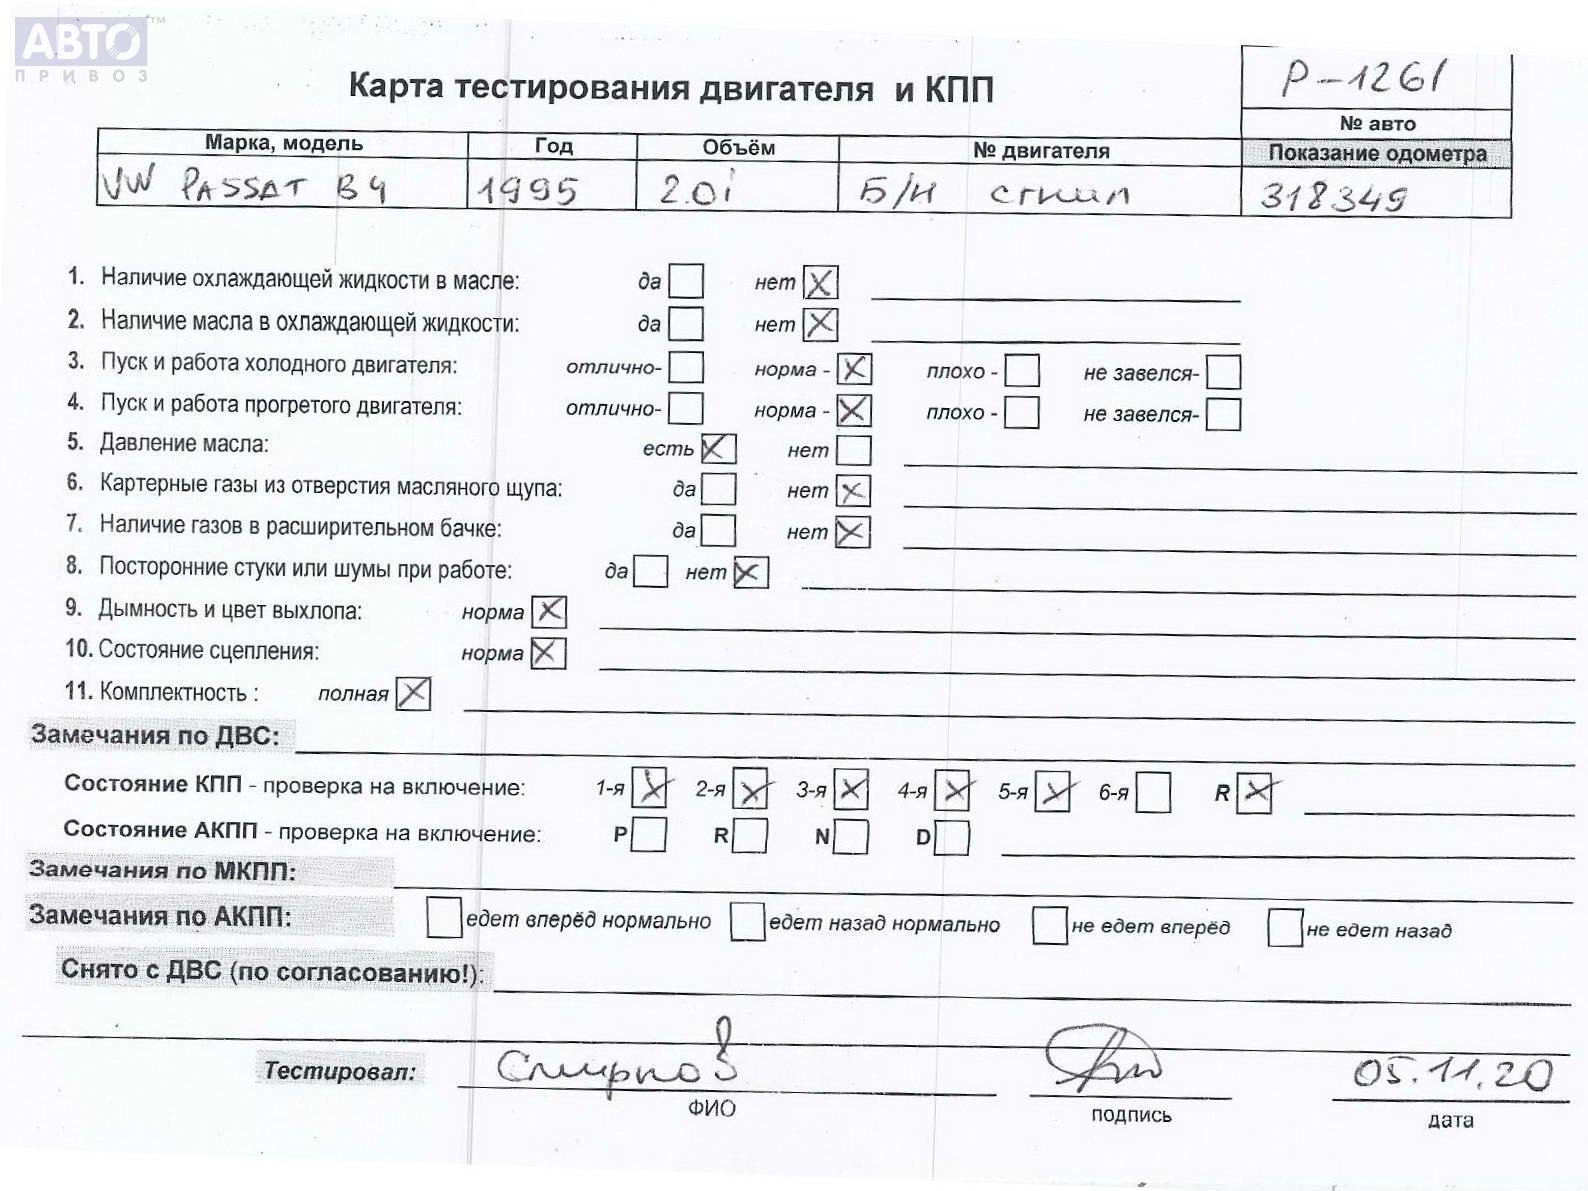 АВТО™
ПРИВОЗ
Карта тестирования двигателя и КПП
Р-1261
№ авто
Марка, модель Год Объём № двигателя Показание одометра
VW PASSAT B4 1995 2.0i Б/Н сгнил 318349
1. Наличие охлаждающей жидкости в масле: да нет X
2. Наличие масла в охлаждающей жидкости: да нет X
3. Пуск и работа холодного двигателя: отлично- норма - X плохо - не завелся-
4. Пуск и работа прогретого двигателя: отлично- норма - X плохо - не завелся-
5. Давление масла: есть X нет
6. Картерные газы из отверстия масляного щупа: да нет X
7. Наличие газов в расширительном бачке: да нет X
8. Посторонние стуки или шумы при работе: да нет X
9. Дымность и цвет выхлопа: норма X
10. Состояние сцепления: норма X
11. Комплектность : полная X
Замечания по ДВС:
Состояние КПП - проверка на включение: 1-я X 2-я X 3-я X 4-я X 5-я X 6-я R X
Состояние АКПП - проверка на включение: P R N D
Замечания по МКПП:
Замечания по АКПП: едет вперёд нормально едет назад нормально не едет вперёд не едет назад
Снято с ДВС (по согласованию!):
Тестировал: Смирнов 05.11.20
ФИО подпись дата